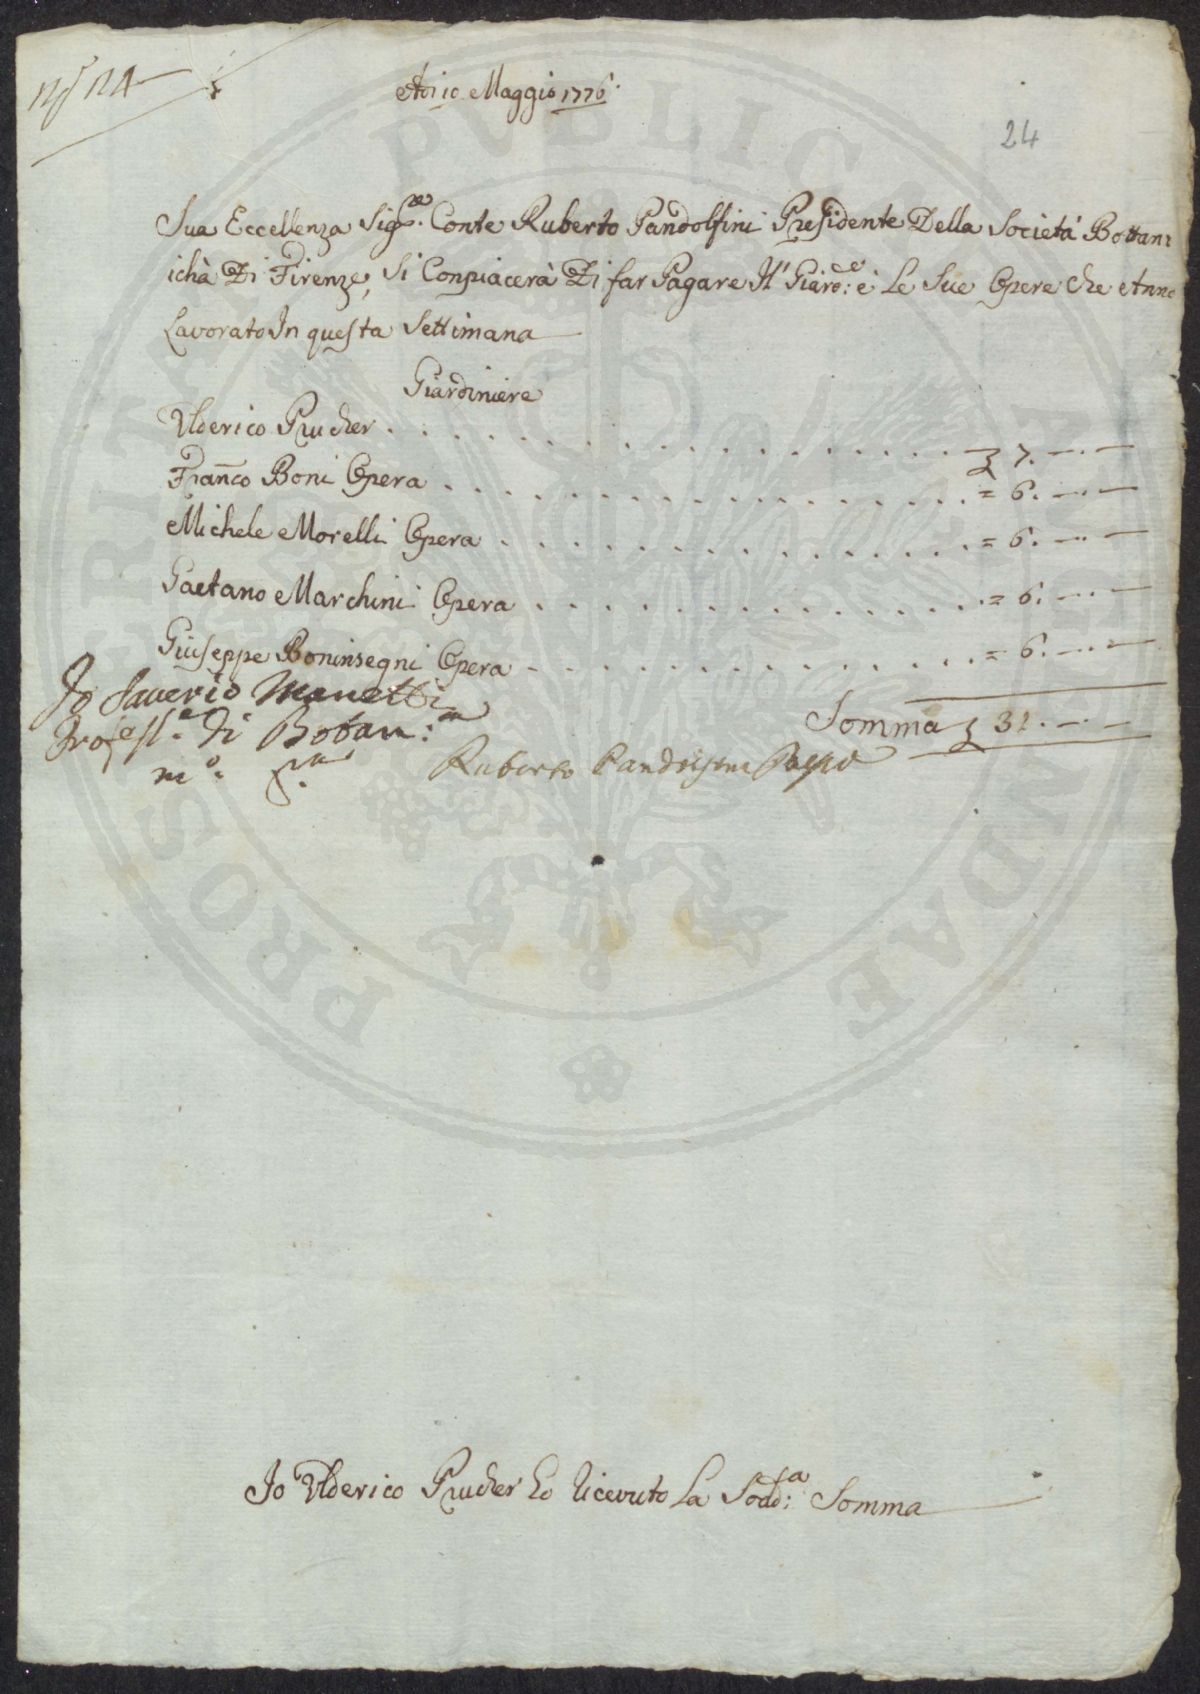 N.º 124
Adi 10 Maggio 1776.
24
Sua Eccellenza Sig.re Conte Ruberto Pandolfini Presidente Della Società Bottani
ichà Di Firenze, Si Conpiacerà Di far Pagare Il Giard:re è Le Sue Opere Che Anno
Lavorato In questa Settimana
Giardiniere
Ulderico Prucher . . . . . . . . . . . . £ 7. —.—
Fran̄co Boni Opera . . . . . . . . . . . . = 6. —.—
Michele Morelli Opera . . . . . . . . . . . = 6. —.—
Gaetano Marchini Opera . . . . . . . . . . . = 6. —.—
Giuseppe Boninsegni Opera . . . . . . . . . . = 6. —.—
Somma £ 31. —.—
Io Saverio Manetti
Profess.e di Botan:ca
m.º p.ª
Ruberto Pandolfini
Io Ulderico Prucher ho Ricevuto La Sodd:a Somma
PROSPERITATI PUBLICAE AUGENDAE